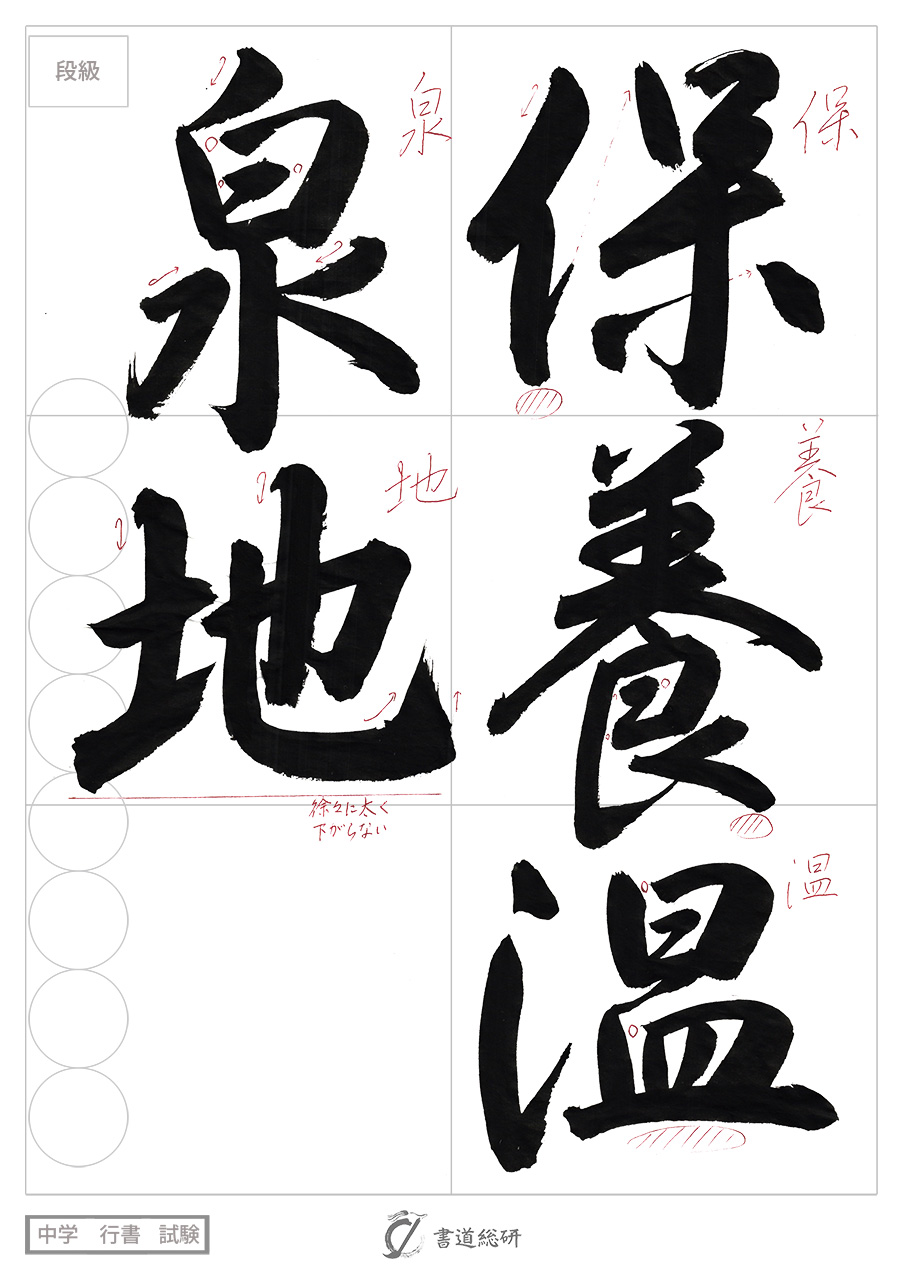 保養温
泉地
保
養
温
泉
地
徐々に太く
下がらない
段級
中学 行書 試験
書道総研